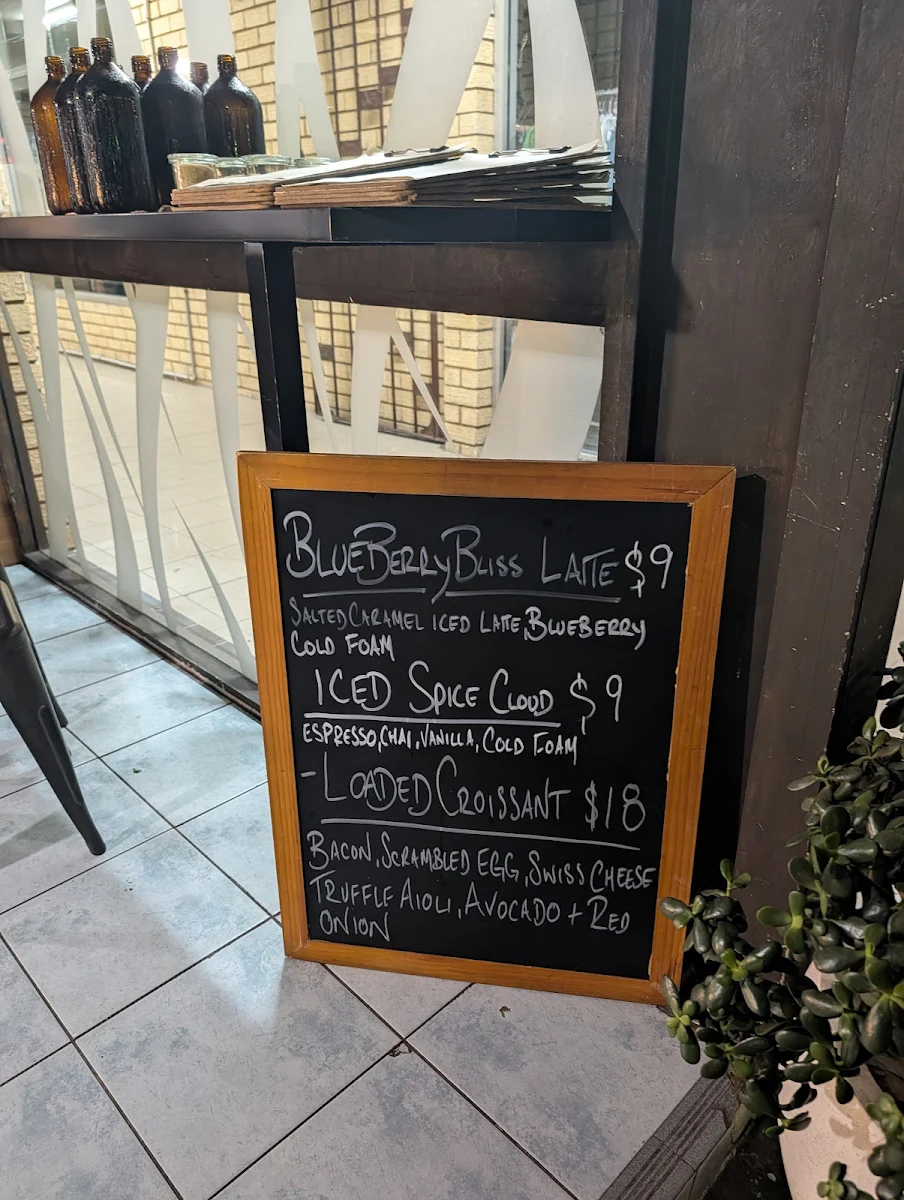 BLUEBERRY BLISS LATTE $9
SALTED CARAMEL ICED LATTE, BLUEBERRY
COLD FOAM
ICED SPICE CLOUD $9
ESPRESSO, CHAI, VANILLA, COLD FOAM
-LOADED CROISSANT $18
BACON, SCRAMBLED EGG, SWISS CHEESE
TRUFFLE AIOLI, AVOCADO + RED
ONION